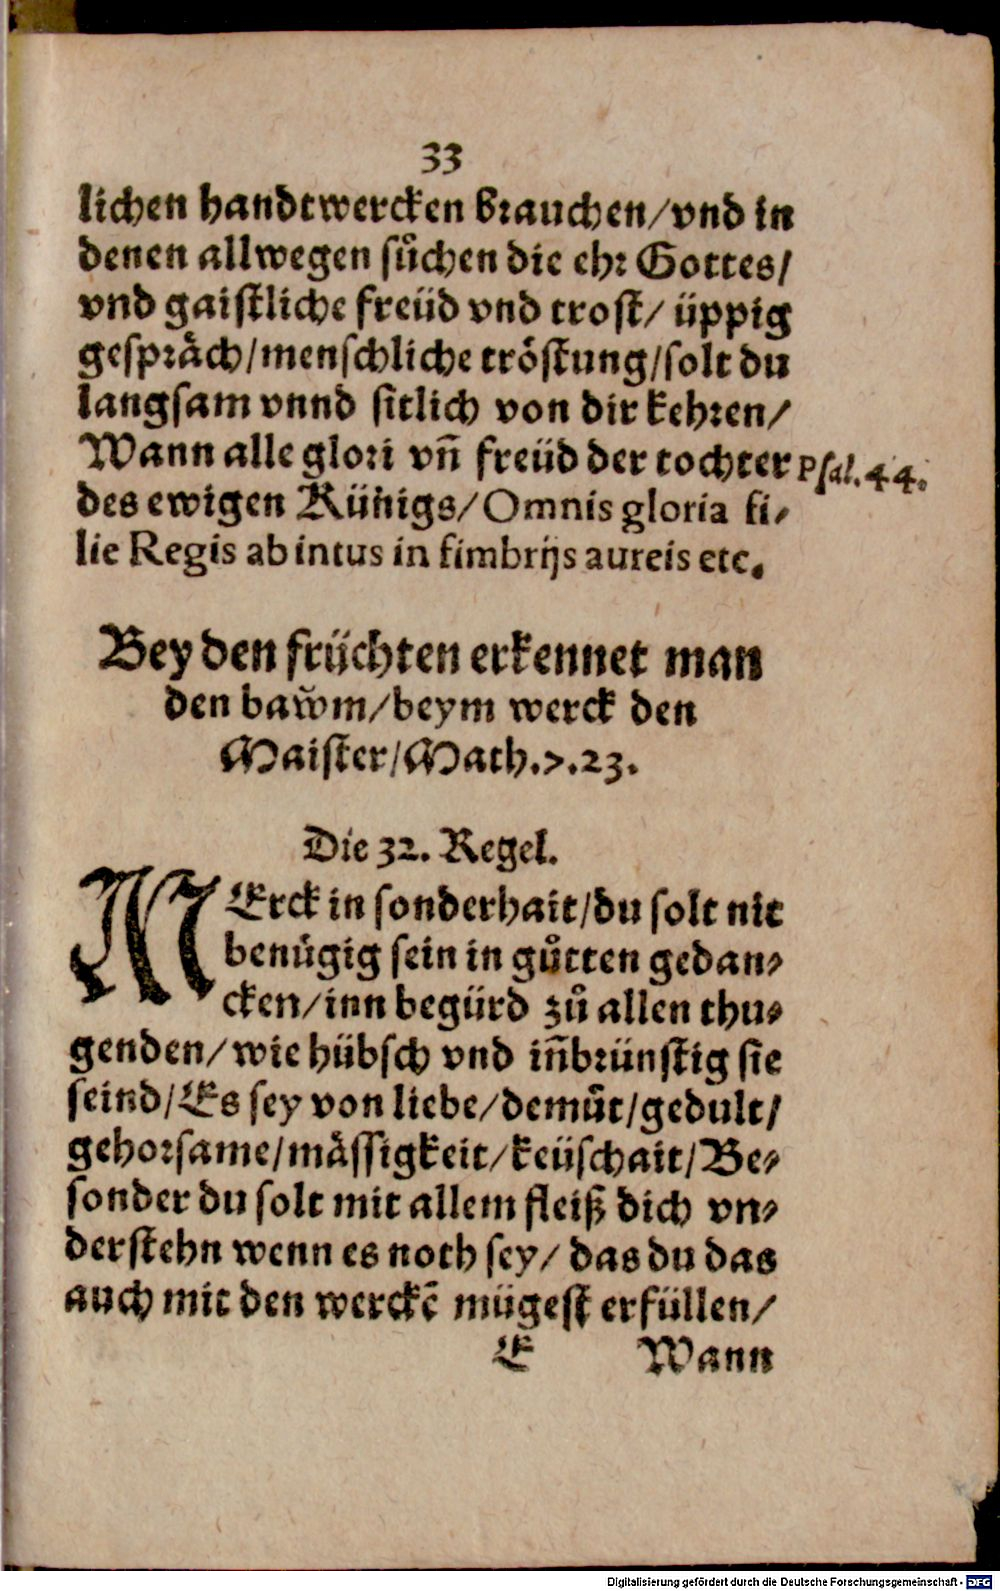 33
lichen handtwercken brauchen/vnd in
denen allwegen sůchen die ehr Gottes/
vnd gaistliche freüd vnd trost/ üppig
gespräch/menschliche tröstung/solt du
langsam vnnd sitlich von dir kehren/
Wann alle glori vñ freüd der tochter Psal.44.
des ewigen Künigs/Omnis gloria fi⸗
lie Regis ab intus in fimbrijs aureis etc.
Bey den früchten erkennet man
den baw̃m/beym werck den
Maister/Math.7.23.
Die 32. Regel.
MErck in sonderhait/du solt nit
benügig sein in gůtten gedan⸗
cken/inn begürd zů allen thu⸗
genden/wie hübsch vnd iñbrünstig sie
seind/Es sey von liebe/demůt/gedult/
gehorsame/mässigkeit/keüschait/Be⸗
sonder du solt mit allem fleiß dich vn⸗
derstehn wenn es noth sey/ das du das
auch mit den werckẽ mügest erfüllen/
E Wann
Digitalisierung gefördert durch die Deutsche Forschungsgemeinschaft - DFG